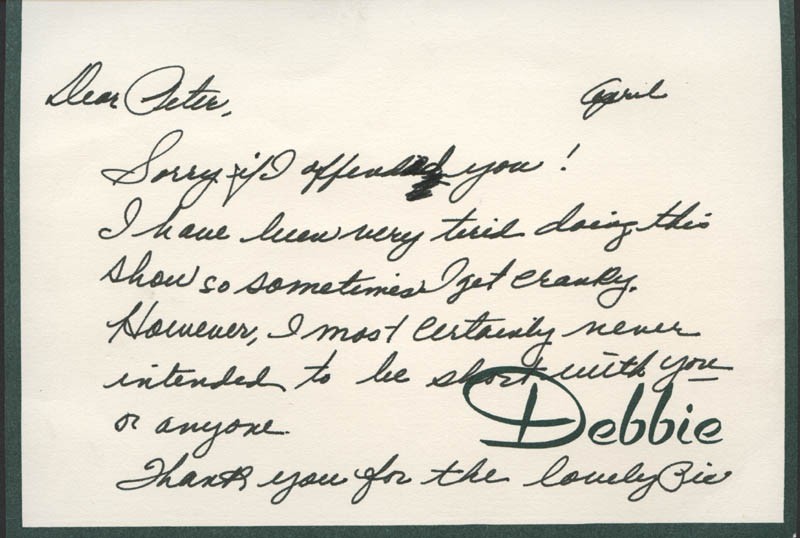 Dear Peter, April
Sorry if I offended you!
I have been very tired doing this
show so sometimes I get cranky.
However, I most certainly never
intended to be short with you
or anyone.
Debbie
Thank you for the lovely Pic